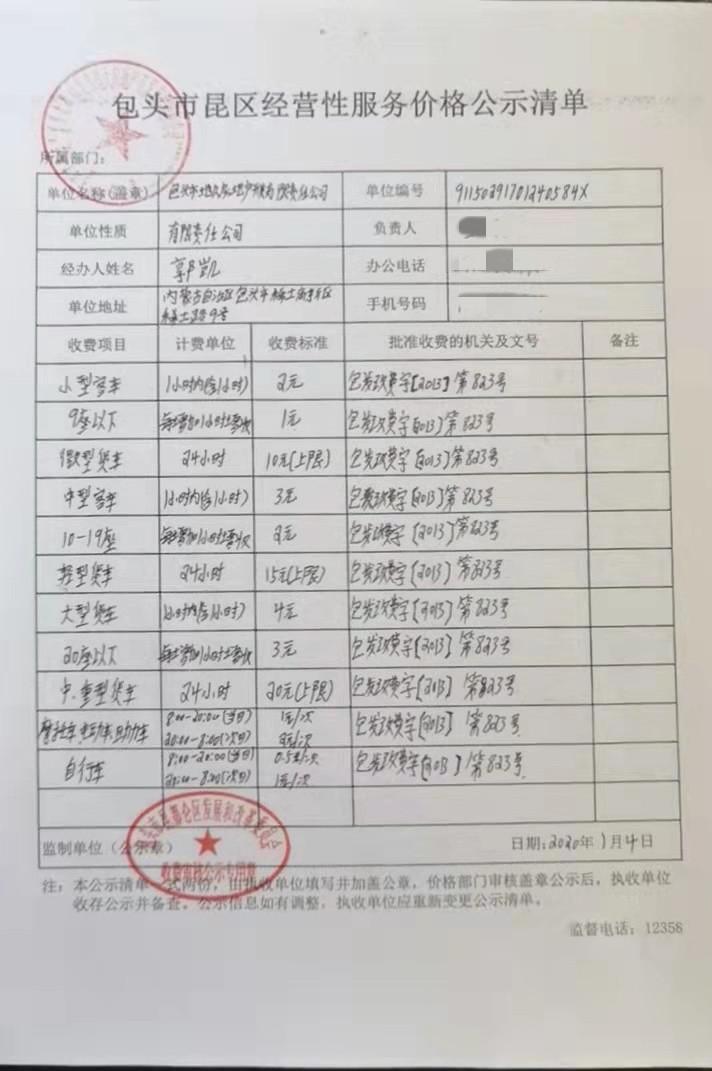 包头市昆区经营性服务价格公示清单
所属部门：
单位名称(盖章) 包头市 有限责任公司 单位编号 91150291701240584X
单位性质 有限责任公司 负责人
经办人姓名 郭凯 办公电话
单位地址 内蒙古自治区包头市稀土高新区 手机号码
稀土路9号
收费项目 计费单位 收费标准 批准收费的机关及文号 备注
小型客车 1小时内(含1小时) 2元 包发改费字[2013]第823号
9座以下 每增加1小时 1元 包发改费字[2013]第823号
微型货车 24小时 10元(上限) 包发改费字[2013]第823号
中型客车 1小时内(含1小时) 3元 包发改费字[2013]第823号
10-19座 每增加1小时 2元 包发改费字[2013]第823号
轻型货车 24小时 15元(上限) 包发改费字[2013]第823号
大型货车 1小时内(含1小时) 4元 包发改费字[2013]第823号
20座以下 每增加1小时 3元 包发改费字[2013]第823号
中.重型货车 24小时 20元(上限) 包发改费字[2013]第823号
摩托车.电动车.助力车 8:00-20:00(当日) 1元/次 包发改费字[2013]第823号
20:00-8:00(次日) 2元/次
自行车 8:00-20:00(当日) 0.5元/次 包发改费字[2013]第823号
20:00-8:00(次日) 1元/次
监制单位（公示章） 日期:2020年1月4日
包头市昆都仑区发展和改革委员会
收费审核公示专用章
注：本公示清单一式两份，由执收单位填写并加盖公章，价格部门审核盖章公示后，执收单位
收存公示并备查。公示信息如有调整，执收单位应重新变更公示清单。
监督电话：12358